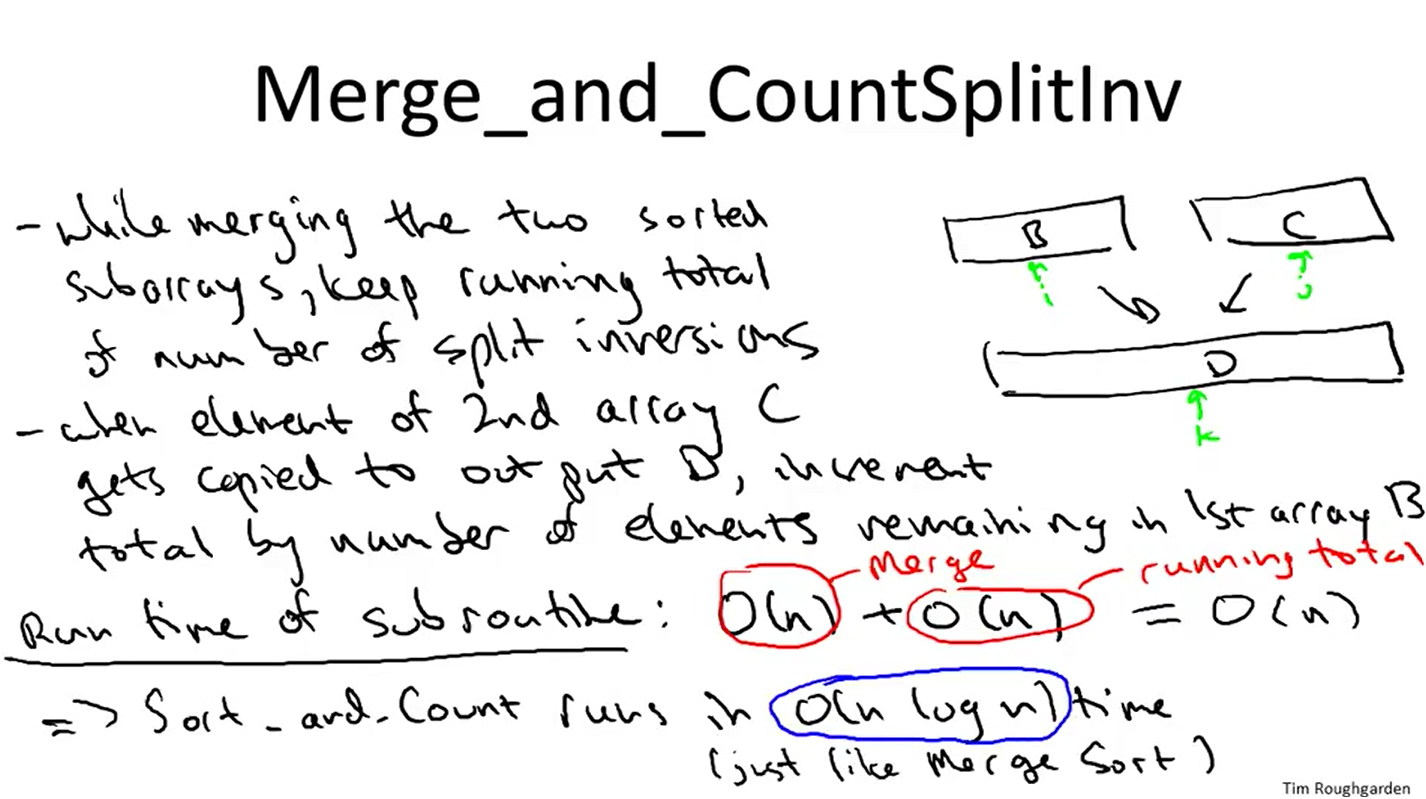 Merge_and_CountSplitInv
- while merging the two sorted
subarrays, keep running total
of number of split inversions
- when element of 2nd array C
gets copied to output D, increment
total by number of elements remaining in 1st array B
B
C
i
j
D
k
Merge
running total
Run time of subroutine: O(n) + O(n) = O(n)
=> Sort_and_Count runs in O(n log n) time
(just like Merge Sort)
Tim Roughgarden